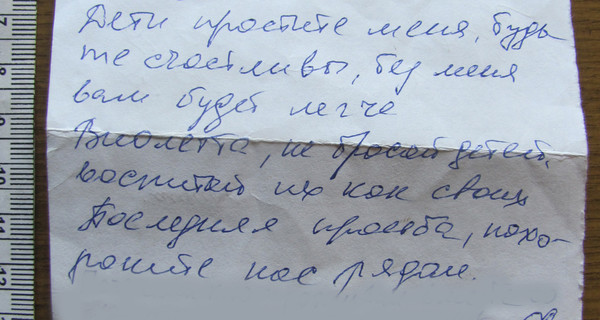 Дети простите меня, будь
те счастливы, без меня
вам будет легче
Виолетта, не бросай детей,
воспитай их как своих
Последняя просьба, похо-
роните нас рядом.
7
8
9
10
11
12